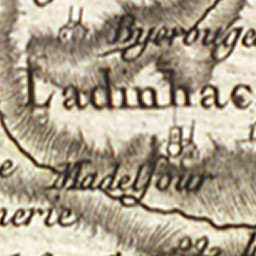 Byerouge
Ladinhac
Madelfour
nerie